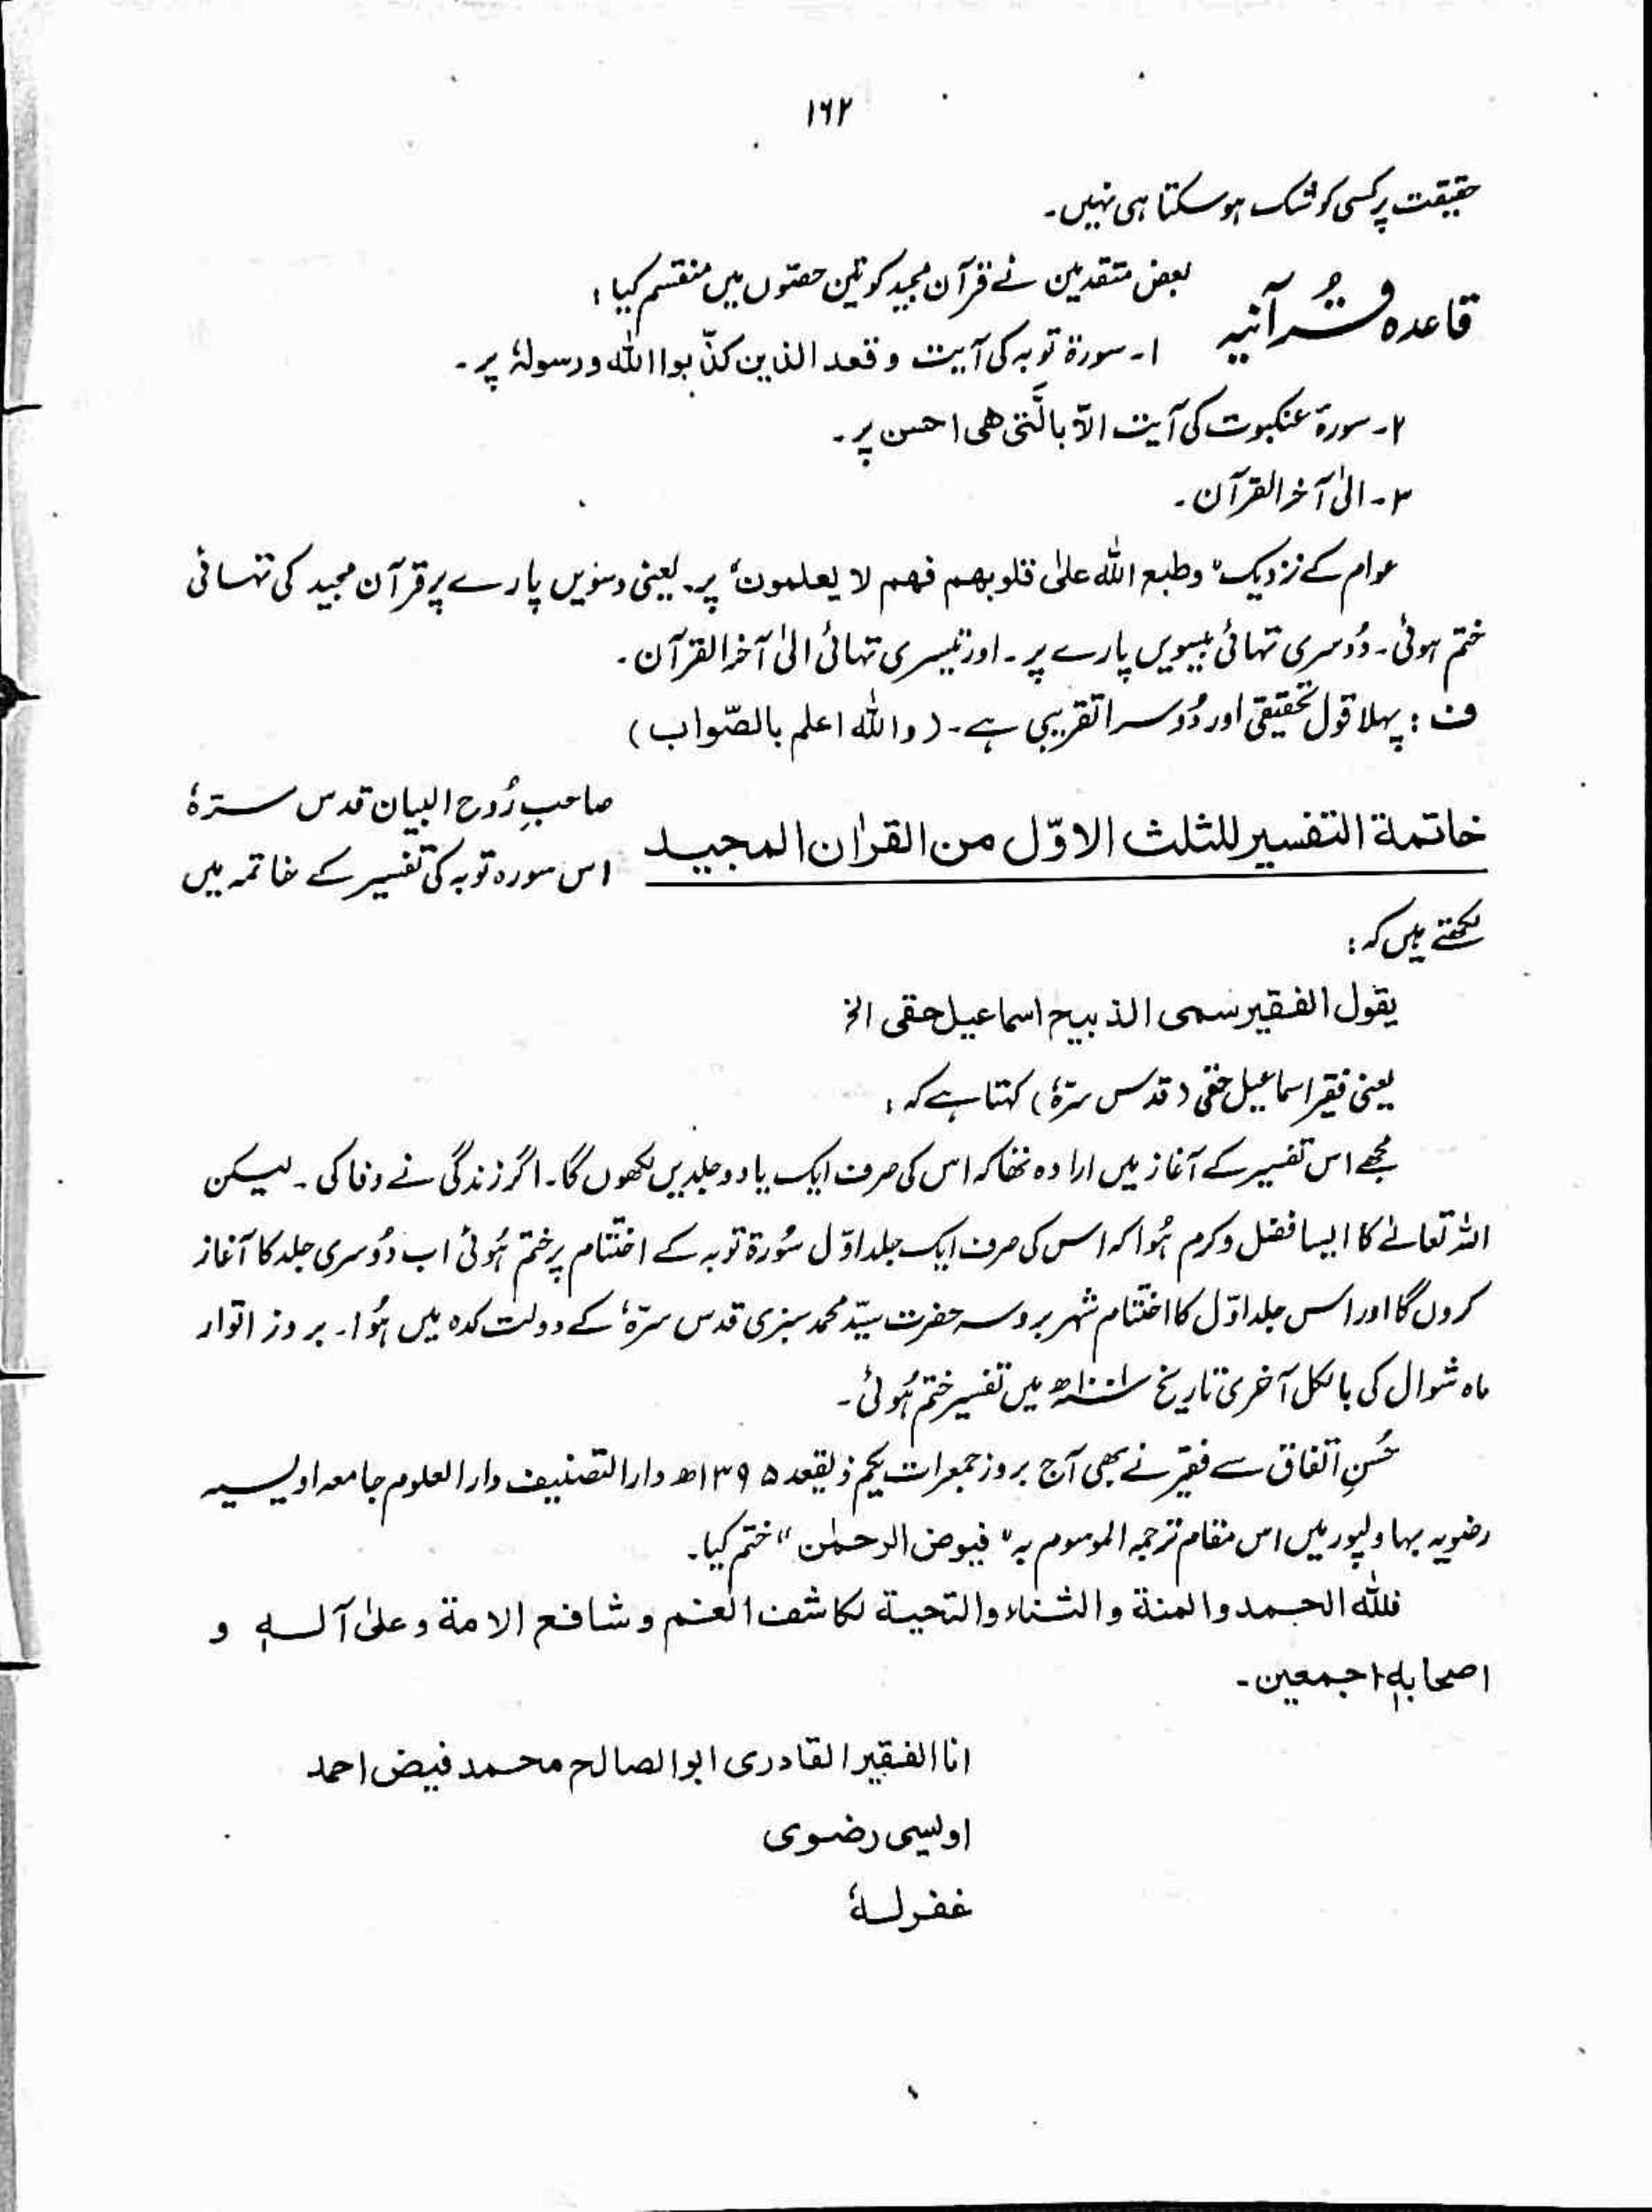 ۱۶۲
حقیقت پر کسی کو شک ہو سکتا ہی نہیں۔
قاعدہ قُرآنیہ بعض متقدمین نے قرآن مجید کو تین حصّوں میں منقسم کیا :
۱۔ سورۃ توبہ کی آیت وقعد الذین کذّبوا اللّٰہ ورسولہٗ پر۔
۲۔ سورۃ عنکبوت کی آیت الاّ بالَّتی ھی احسن پر۔
۳۔ الیٰ آخر القرآن۔
عوام کے نزدیک "وطبع اللّٰہ علیٰ قلوبھم فھم لا یعلمون" پر۔ یعنی دسویں پارے پر قرآن مجید کی تہائی
ختم ہوئی۔ دُوسری تہائی بیسویں پارے پر۔ اور تیسری تہائی الیٰ آخر القرآن۔
ف : پہلا قول تحقیقی اور دُوسرا تقریبی ہے۔ (واللّٰہ اعلم بالصّواب)
خاتمۃ التفسیر للثلث الاوّل من القرٰان المجید صاحبِ رُوح البیان قدس سترہٗ
اس سورہ توبہ کی تفسیر کے خاتمہ میں
لکھتے ہیں کہ :
یقول الفقیر سمی الذبیح اسماعیل حقی الخ
یعنی فقیر اسماعیل حقی (قدس سرّہٗ) کہتا ہے کہ :
مجھے اس تفسیر کے آغاز میں ارادہ تھا کہ اس کی صرف ایک یا دو جلدیں لکھوں گا۔ اگر زندگی نے وفا کی۔ لیکن
اللہ تعالےٰ کا ایسا فضل و کرم ہُوا کہ اس کی صرف ایک جلد اوّل سُورۃ توبہ کے اختتام پر ختم ہُوئی اب دُوسری جلد کا آغاز
کروں گا اور اس جلد اوّل کا اختتام شہر بروسہ حضرت سیّد محمد سبزی قدس سرّہٗ کے دولت کدہ میں ہُوا۔ بروز اتوار
ماہ شوال کی بالکل آخری تاریخ میں تفسیر ختم ہُوئی۔
حُسنِ اتفاق سے فقیر نے بھی آج بروز جمعرات یکم ذیقعد ۱۳۹۵ھ دارالتصنیف دارالعلوم جامعہ اویسیہ
رضویہ بہاولپور میں اس مقام ترجمہ الموسوم بہ "فیوض الرحمٰن" ختم کیا۔
فللّٰہ الحمد والمنۃ والثناء والتحیۃ لکاشف الغم وشافع الامۃ وعلیٰ آلہٖ و
اصحابہٖ اجمعین۔
انا الفقیر القادری ابوالصالح محمد فیض احمد
اویسی رضوی
غفرلہٗ